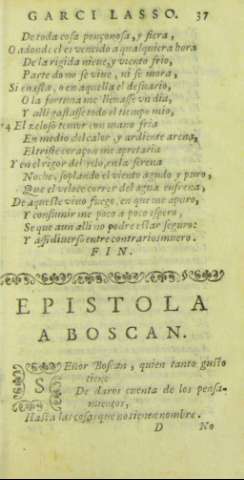 GARCI LASSO. 37
De toda cosa ponçoñosa, y fiera,
O adonde el es vencido a qualquiera hora
De la rigida nieue, y viento frio,
Parte do no se viue, ni se mora,
Si en esta, o en aquella el desuario,
O la fortuna me lleuasse vn dia,
Y alli gastasse todo el tiempo mio,
El zeloso temor con mano fria
En medio del calor, y ardiente arena,
El triste coraçon me apretaria
Y en el rigor del yelo, en la serena
Noche, soplando el viento agudo y puro,
Que el veloce correr del agua enfrena,
De aqueste viuo fuego, en que me apuro,
Y consumir me poco a poco espero,
Se que aun alli no podre estar seguro:
Y assi diuerso entre contrarios muero.
FIN.
EPISTOLA
A BOSCAN.
SEñor Boscan, quien tanto gusto
tiene
De daros cuenta de los pensa-
mientos,
Hasta las cosas que no tienen nombre.
D No